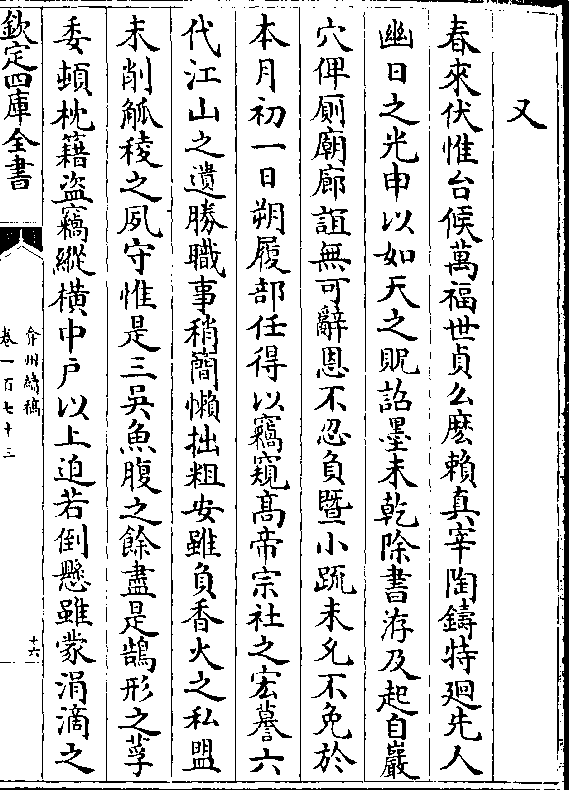 又
春來伏惟台候萬福世貞么麽賴真宰陶鑄特廻先人
幽日之光申以如天之貺詔墨未乾除書洊及起自巖
穴俾厠廟廊誼無可辭恩不忍負暨小䟽未允不免於
本月初一日朔履部任得以竊窺髙帝宗社之宏謩六
代江山之遺勝職事稍簡懶拙粗安雖負香火之私盟
未削觚稜之夙守惟是三吳魚腹之餘盡是鵠形之莩
委頓枕藉盗竊縱横中戶以上迫若倒懸雖蒙涓滴之
欽定四庫全書
弇州續稿
卷一百七十三
十六